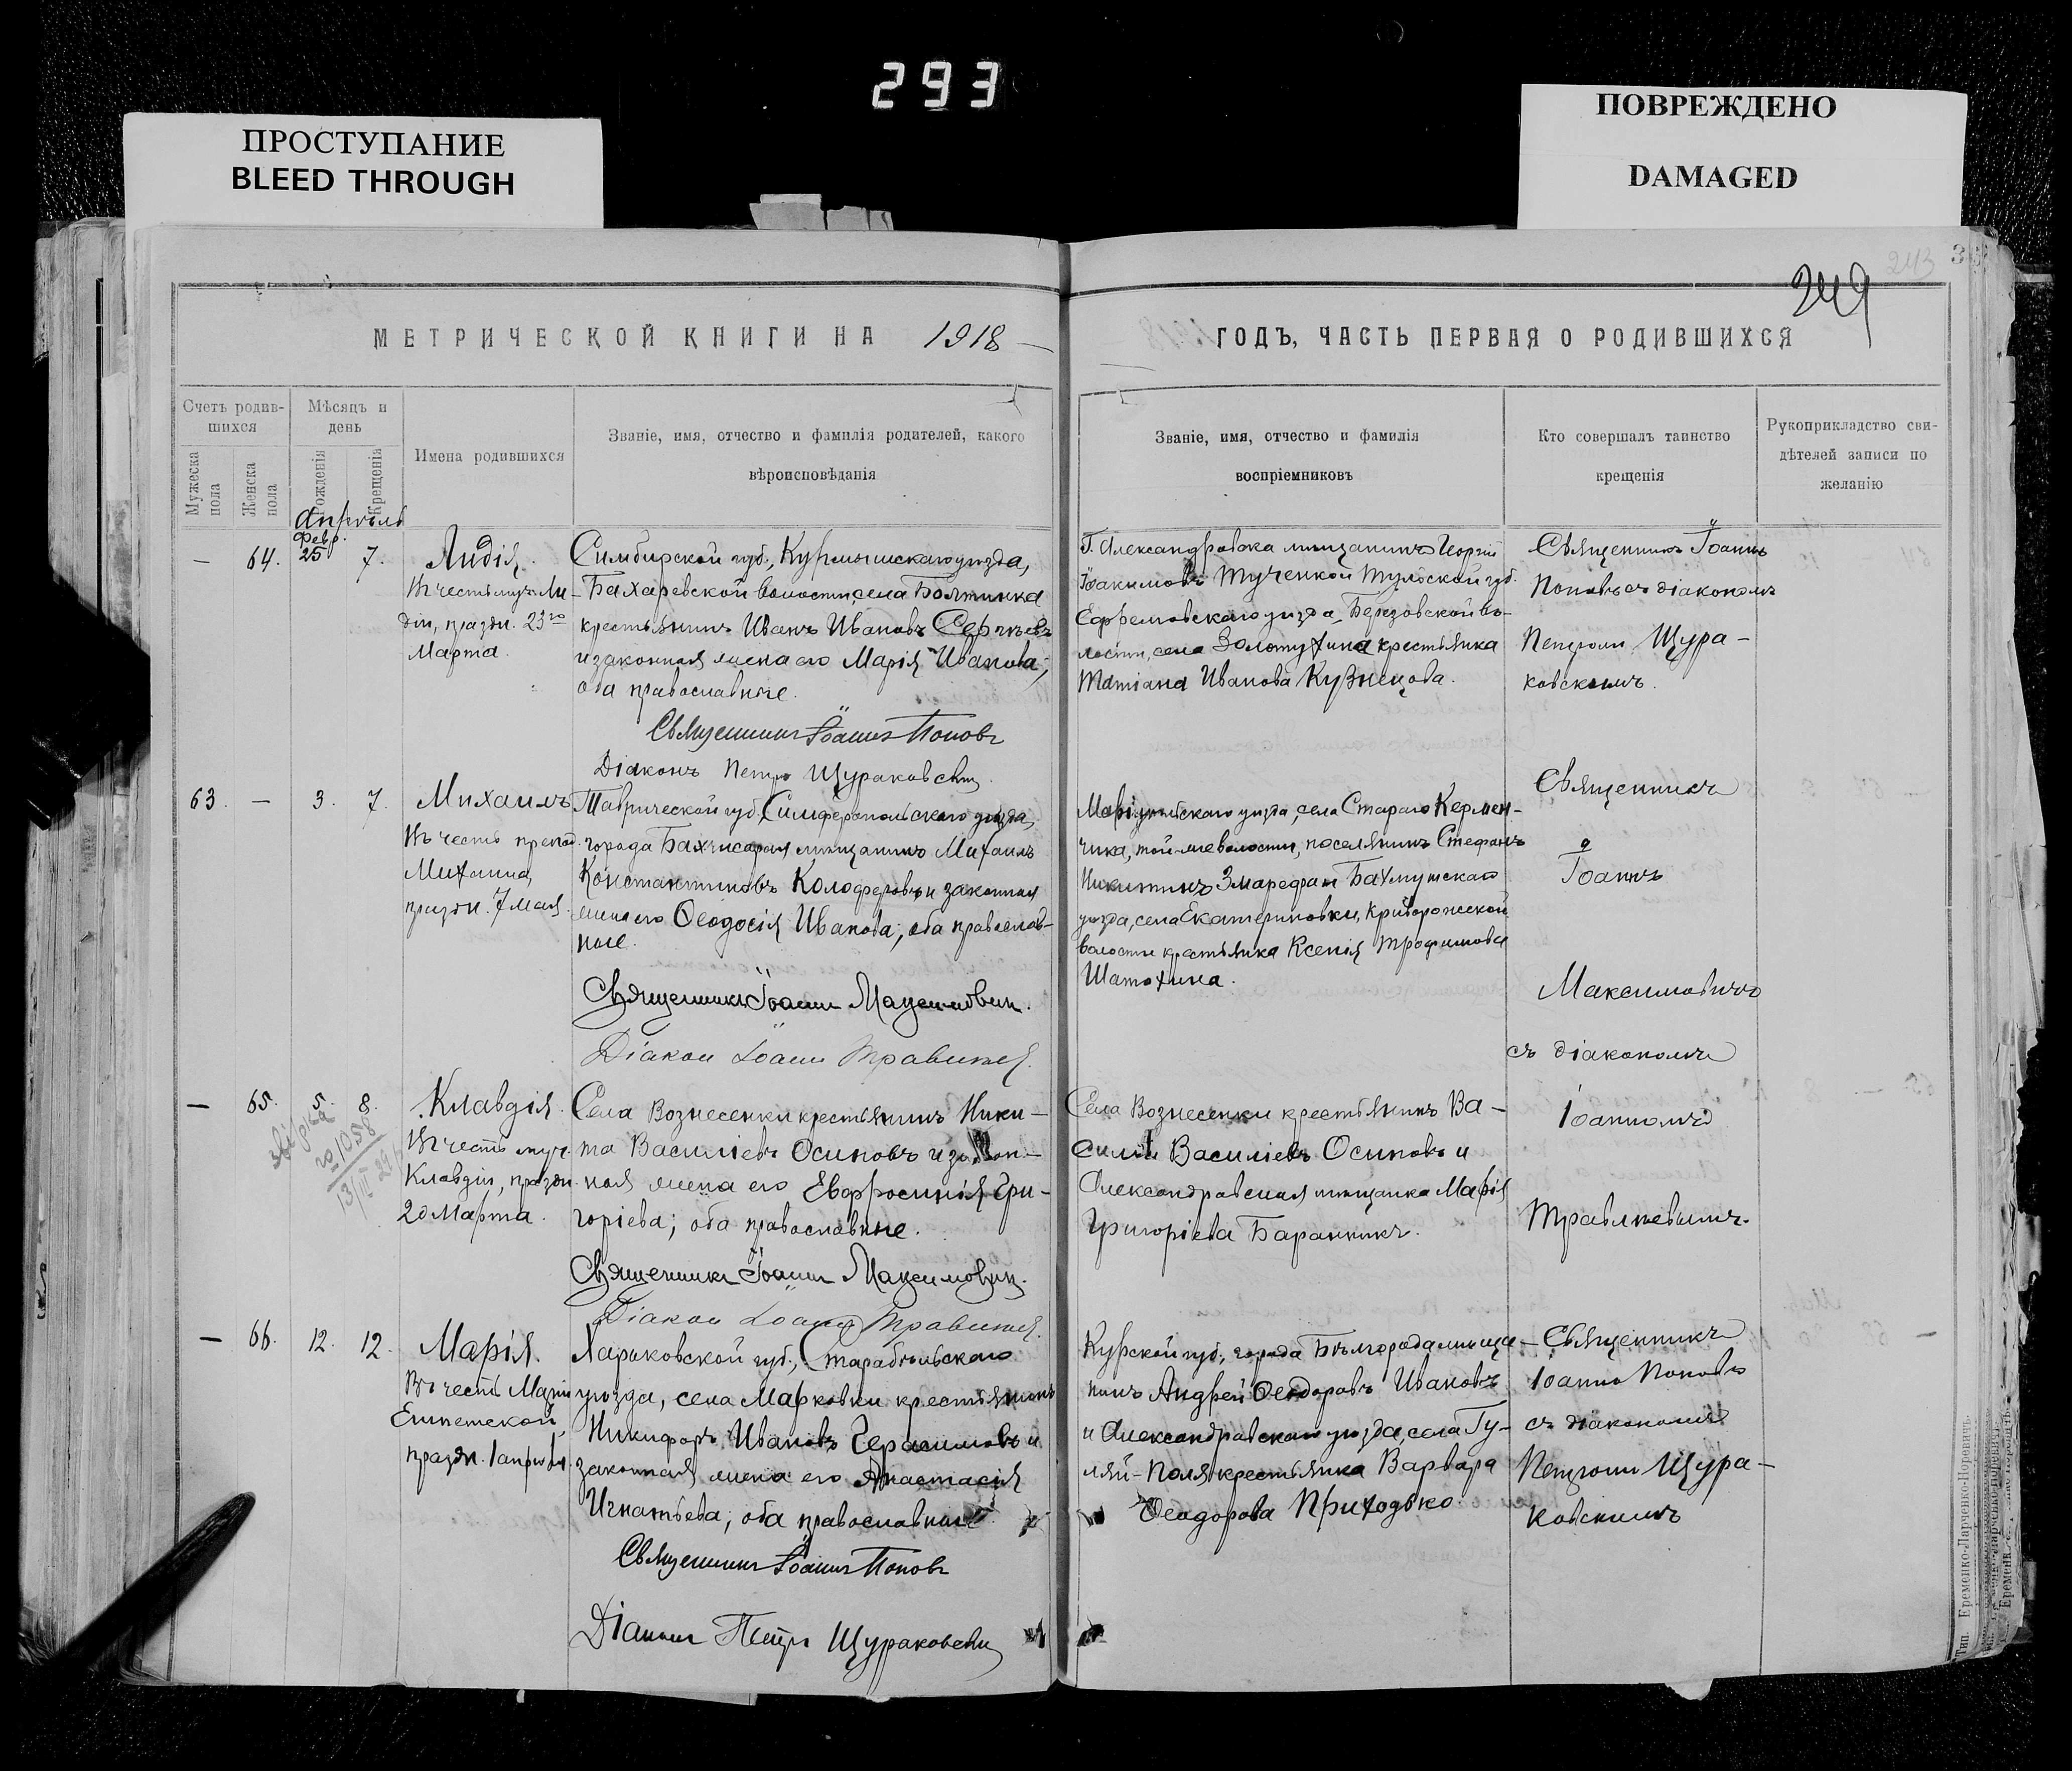 293
ПРОСТУПАНИЕ
BLEED THROUGH
ПОВРЕЖДЕНО
DAMAGED
243
249
МЕТРИЧЕСКОЙ КНИГИ НА 1918
ГОДЪ, ЧАСТЬ ПЕРВАЯ О РОДИВШИХСЯ
Счетъ родив-
шихся
Мужеска пола
Женска пола
Мѣсяцъ и
день
Рожденія
Крещенія
Имена родившихся
Званіе, имя, отчество и фамилія родителей, какого
вѣроисповѣданія
Званіе, имя, отчество и фамилія
воспріемниковъ
Кто совершалъ таинство
крещенія
Рукоприкладство сви-
дѣтелей записи по
желанію
Апрѣль
февр.
— 64. 25 7.
Лидія,
Въ честь муч. Ли-
діи, праздн. 23го
Марта.
Симбирской губ., Курмышскаго уѣзда,
Бахаревской волости, села Болтинка
крестьянинъ Иванъ Ивановъ Сергѣевъ
и законная жена его Марія Иванова;
оба православные.
Священникъ Іоаннъ Поповъ
Діаконъ Петръ Щураковскій
Г. Александровска мѣщанинъ Георгій
Іоакимовъ Тученкой Тульской губ.
Ефремовскаго уѣзда, Березовской во-
лости, села Золотухина крестьянка
Татіана Иванова Кузнецова.
Священникъ Іоаннъ
Поповъ съ діакономъ
Петромъ Щура-
ковскимъ.
63. — 3. 7.
Михаилъ
Въ честь препод.
Михаила,
праздн. 7 мая.
Таврической губ., Симферопольскаго уѣзда,
города Бахчисарая мѣщанинъ Михаилъ
Константиновъ Колоферовъ и законная
жена его Ѳеодосія Иванова; оба православ-
ные.
Священникъ Іоаннъ Максимовичъ.
Діаконъ Іоаннъ
Маріупольскаго уѣзда, села Стараго Кермен-
чика, той-же волости, поселянинъ Стефанъ
Никитинъ Бахмутскаго
уѣзда, села Екатериновки, Криворожской
волости крестьянка Ксенія Трофимова
Шатохина.
Священникъ
Іоаннъ
Максимовичъ
съ діакономъ
Іоанномъ
— 65. 5. 8.
звірка
№ 1058
13/III 29
Клавдія.
Въ честь муч.
Клавдіи, праздн.
20 Марта.
Села Вознесенки крестьянинъ Ники-
та Василіевъ Осиповъ и закон-
ная жена его Евфросинія Гри-
горіева; оба православные.
Священникъ Іоаннъ Максимовичъ.
Діаконъ Іоаннъ
Села Вознесенки крестьянинъ Ва-
силій Василіевъ Осиповъ и
Александровская мѣщанка Марія
Григоріева Баранникъ.
— 66. 12. 12.
Марія.
Въ честь Маріи
Египетской,
праздн. 1 апрѣля.
Харьковской губ., Старобѣльскаго
уѣзда, села Марковки крестьянинъ
Никифоръ Ивановъ Герасимовъ и
законная жена его Анастасія
Игнатьева; оба православные.
Священникъ Іоаннъ Поповъ
Діаконъ Петръ Щураковскій
Курской губ., города Бѣлгорода мѣща-
нинъ Андрей Ѳеодоровъ Ивановъ
и Александровскаго уѣзда, села Гу-
ляй-Поля крестьянка Варвара
Ѳеодорова Приходько.
Священникъ
Іоаннъ Поповъ
съ діакономъ
Петромъ Щура-
ковскимъ
Тип. Еременко-Ларченко-Норевичъ.